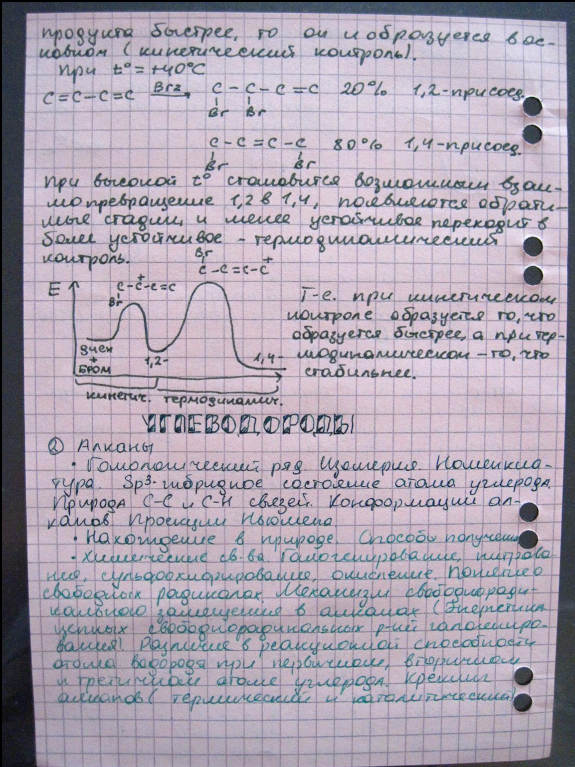 продукта быстрее, то он и образуется в ос-
новном (кинетический контроль).
При t° = +40°C
C=C-C=C Br2 C - C - C = C 20% 1,2-присоед.
Br Br
C - C = C - C 80% 1,4-присоед.
Br Br
При высокой t° становится возможным взаи-
мопревращение 1,2 в 1,4, появляются обрати-
мые стадии и менее устойчивое переходит в
более устойчивое - термодинамический
контроль.
Br
C - C = C - C +
E
C - C - C = C +
Br
диен + бром
1,2-
1,4-
кинетич. термодинамич.
Т-е. при кинетическом
контроле образуется то, что
образуется быстрее, а при тер-
модинамическом - то, что
стабильнее.
УГЛЕВОДОРОДЫ
② Алканы
• Гомологический ряд. Изомерия. Номенкла-
тура. Sp³-гибридное состояние атома углерода.
Природа C-C и C-H связей. Конформации ал-
канов. Проекции Ньюмена
• Нахождение в природе. Способы получения
• Химические св-ва. Галогенирование, нитрова-
ния, сульфоокисление, окисление. Понятие о
свободных радикалах. Механизм свободноради-
кального замещения в алканах (Энергетика
цепных свободнорадикальных р-ий галогениро-
вания). Различие в реакционной способности
атома водорода при первичном, вторичном
и третичном атоме углерода. Крекинг
алканов (термический и каталитический)